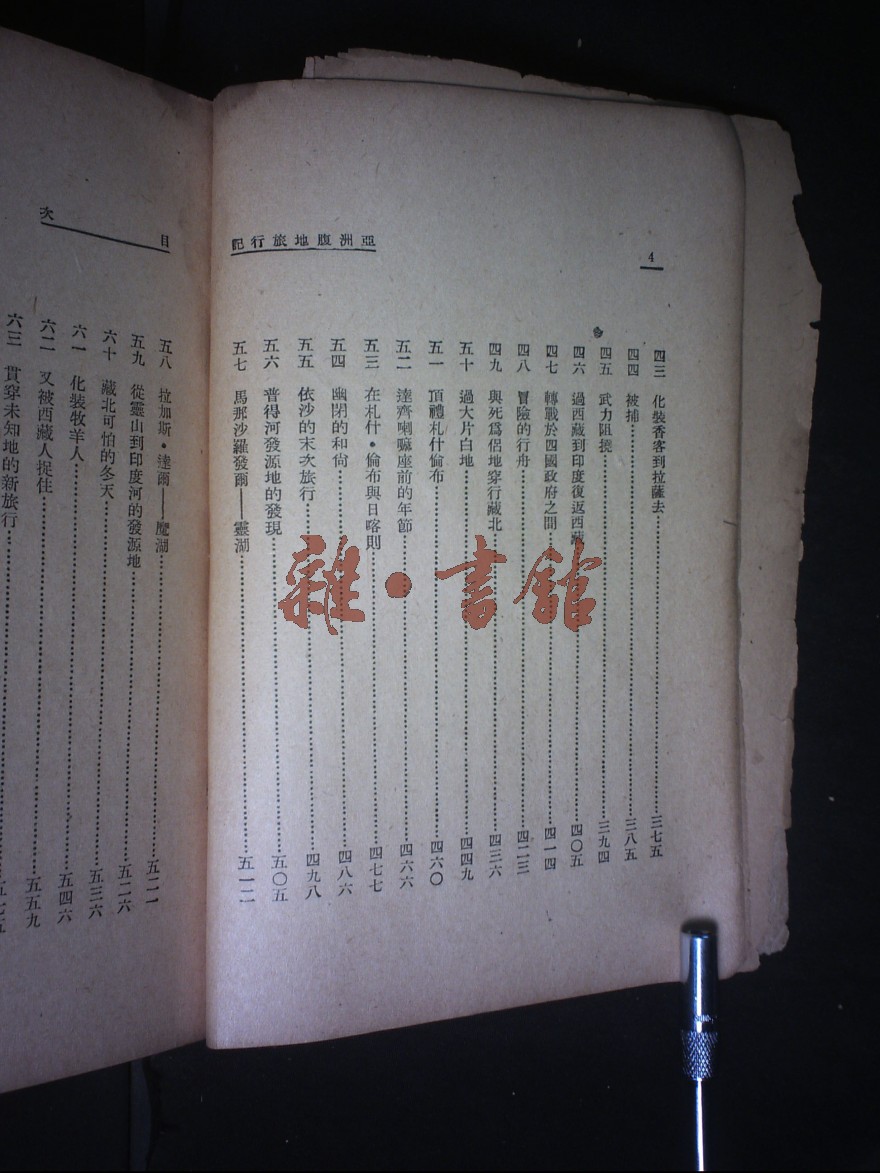 4
亞洲腹地旅行記
四三 化裝香客到拉薩去 三七五
四四 被捕 三八五
四五 武力阻撓 三九四
四六 過西藏到印度復返西藏 四〇五
四七 轉戰於四國政府之間 四一四
四八 冒險的行舟 四二三
四九 與死爲侶地穿行藏北 四三六
五十 過大片白地 四四九
五一 頂禮札什倫布 四六〇
五二 達齊喇嘛座前的年節 四六六
五三 在札什·倫布與日喀則 四七七
五四 幽閉的和尙 四八六
五五 依沙的末次旅行 四九八
五六 普得河發源地的發現 五〇五
五七 馬那沙羅發爾——靈湖 五一二
目次
五八 拉加斯·達爾——魔湖 五二一
五九 從靈山到印度河的發源地 五二六
六十 藏北可怕的冬天 五三六
六一 化裝牧羊人 五四六
六二 又被西藏人捉住 五五九
六三 貫穿未知地的新旅行
雜·書館